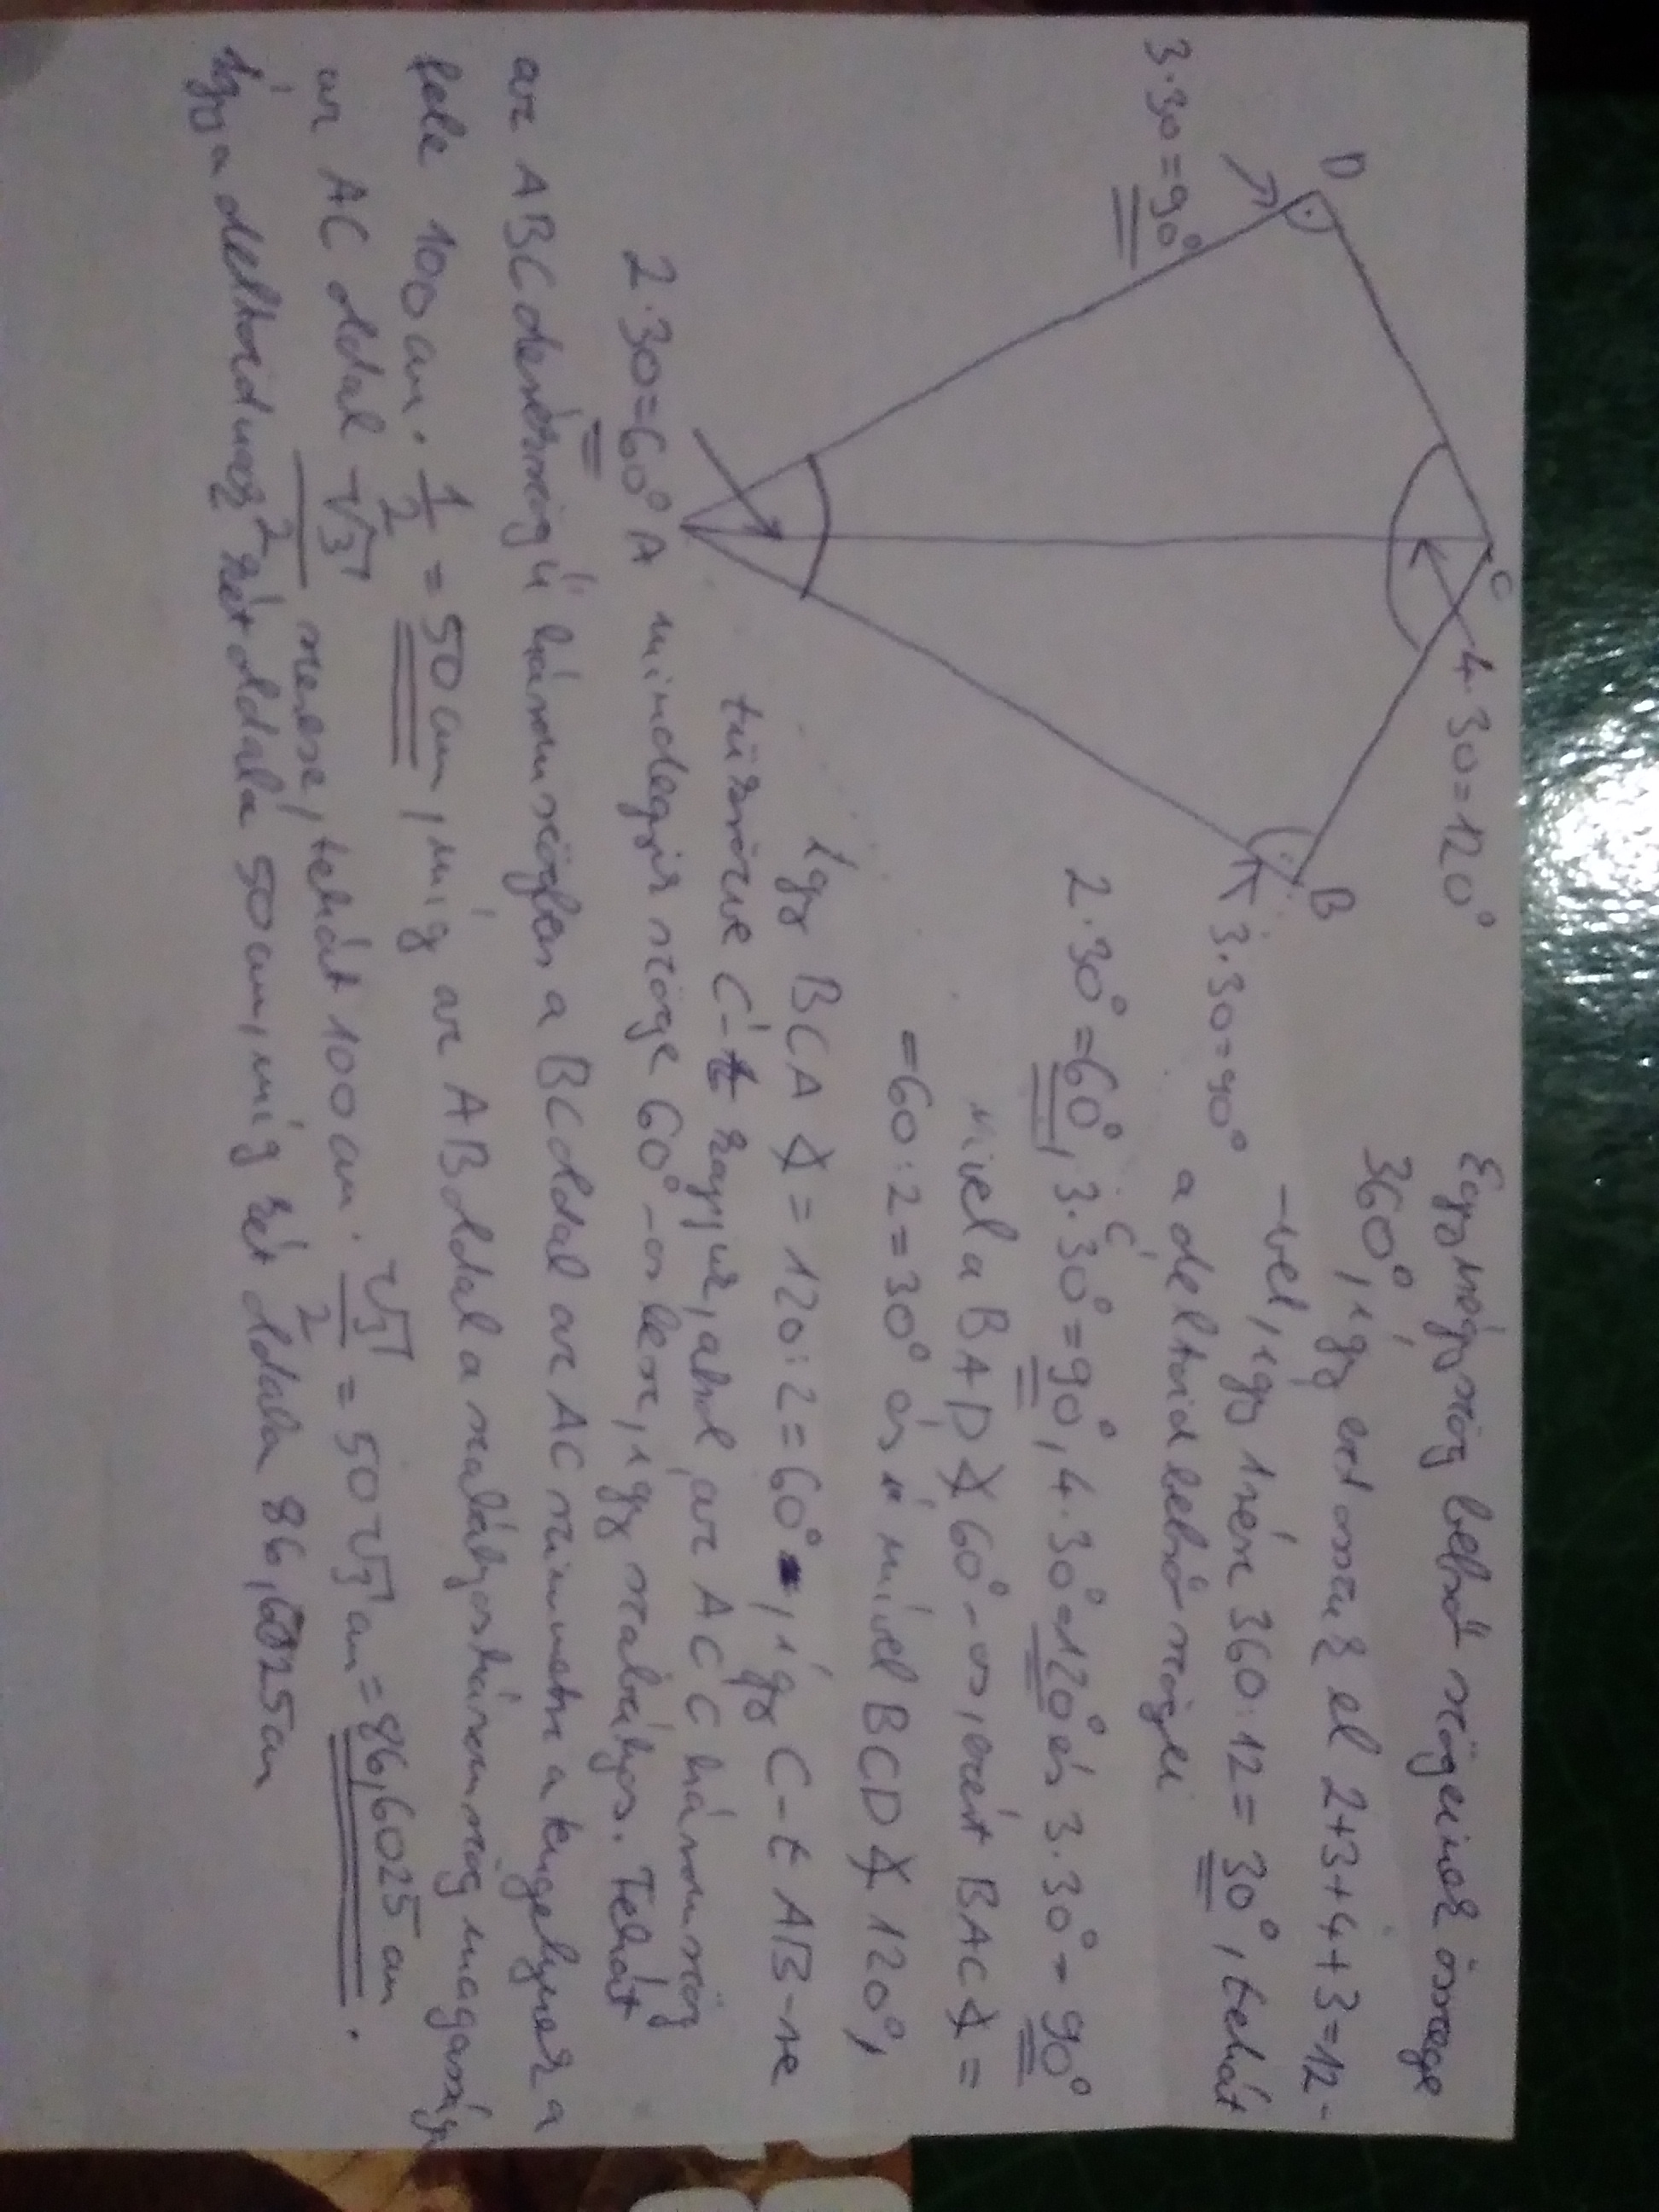 Egy négyszög belső szögeinek összege
360°, így ezt osszuk el 2+3+4+3=12-
-vel, így 1 rész 360:12=30°, tehát
a deltoid belső szögei
2·30°=60°, 3·30°=90°, 4·30°=120° és 3·30°=90°
Mivel a BAD∢ 60°-os, ezért BAC∢=
=60:2=30° és mivel BCD∢ 120°,
így BCA∢=120:2=60°, így C-t AB-re
tükrözve C'-t kapjuk, ahol az AC'C háromszög
mindegyik szöge 60°-os lesz, így szabályos. Tehát
az ABC derékszögű háromszögben a BC oldal az AC
fele 100cm·1/2=50cm, míg az AB oldal a szabályos háromszög magassága
az AC oldal √3/2 szerese, tehát 100cm·√3/2=50√3cm=86,6025cm.
Így a deltoidnak két oldala 50cm, míg két oldala 86,6025cm
D
C
B
A
4·30=120°
3·30=90°
3·30=90°
2·30=60°